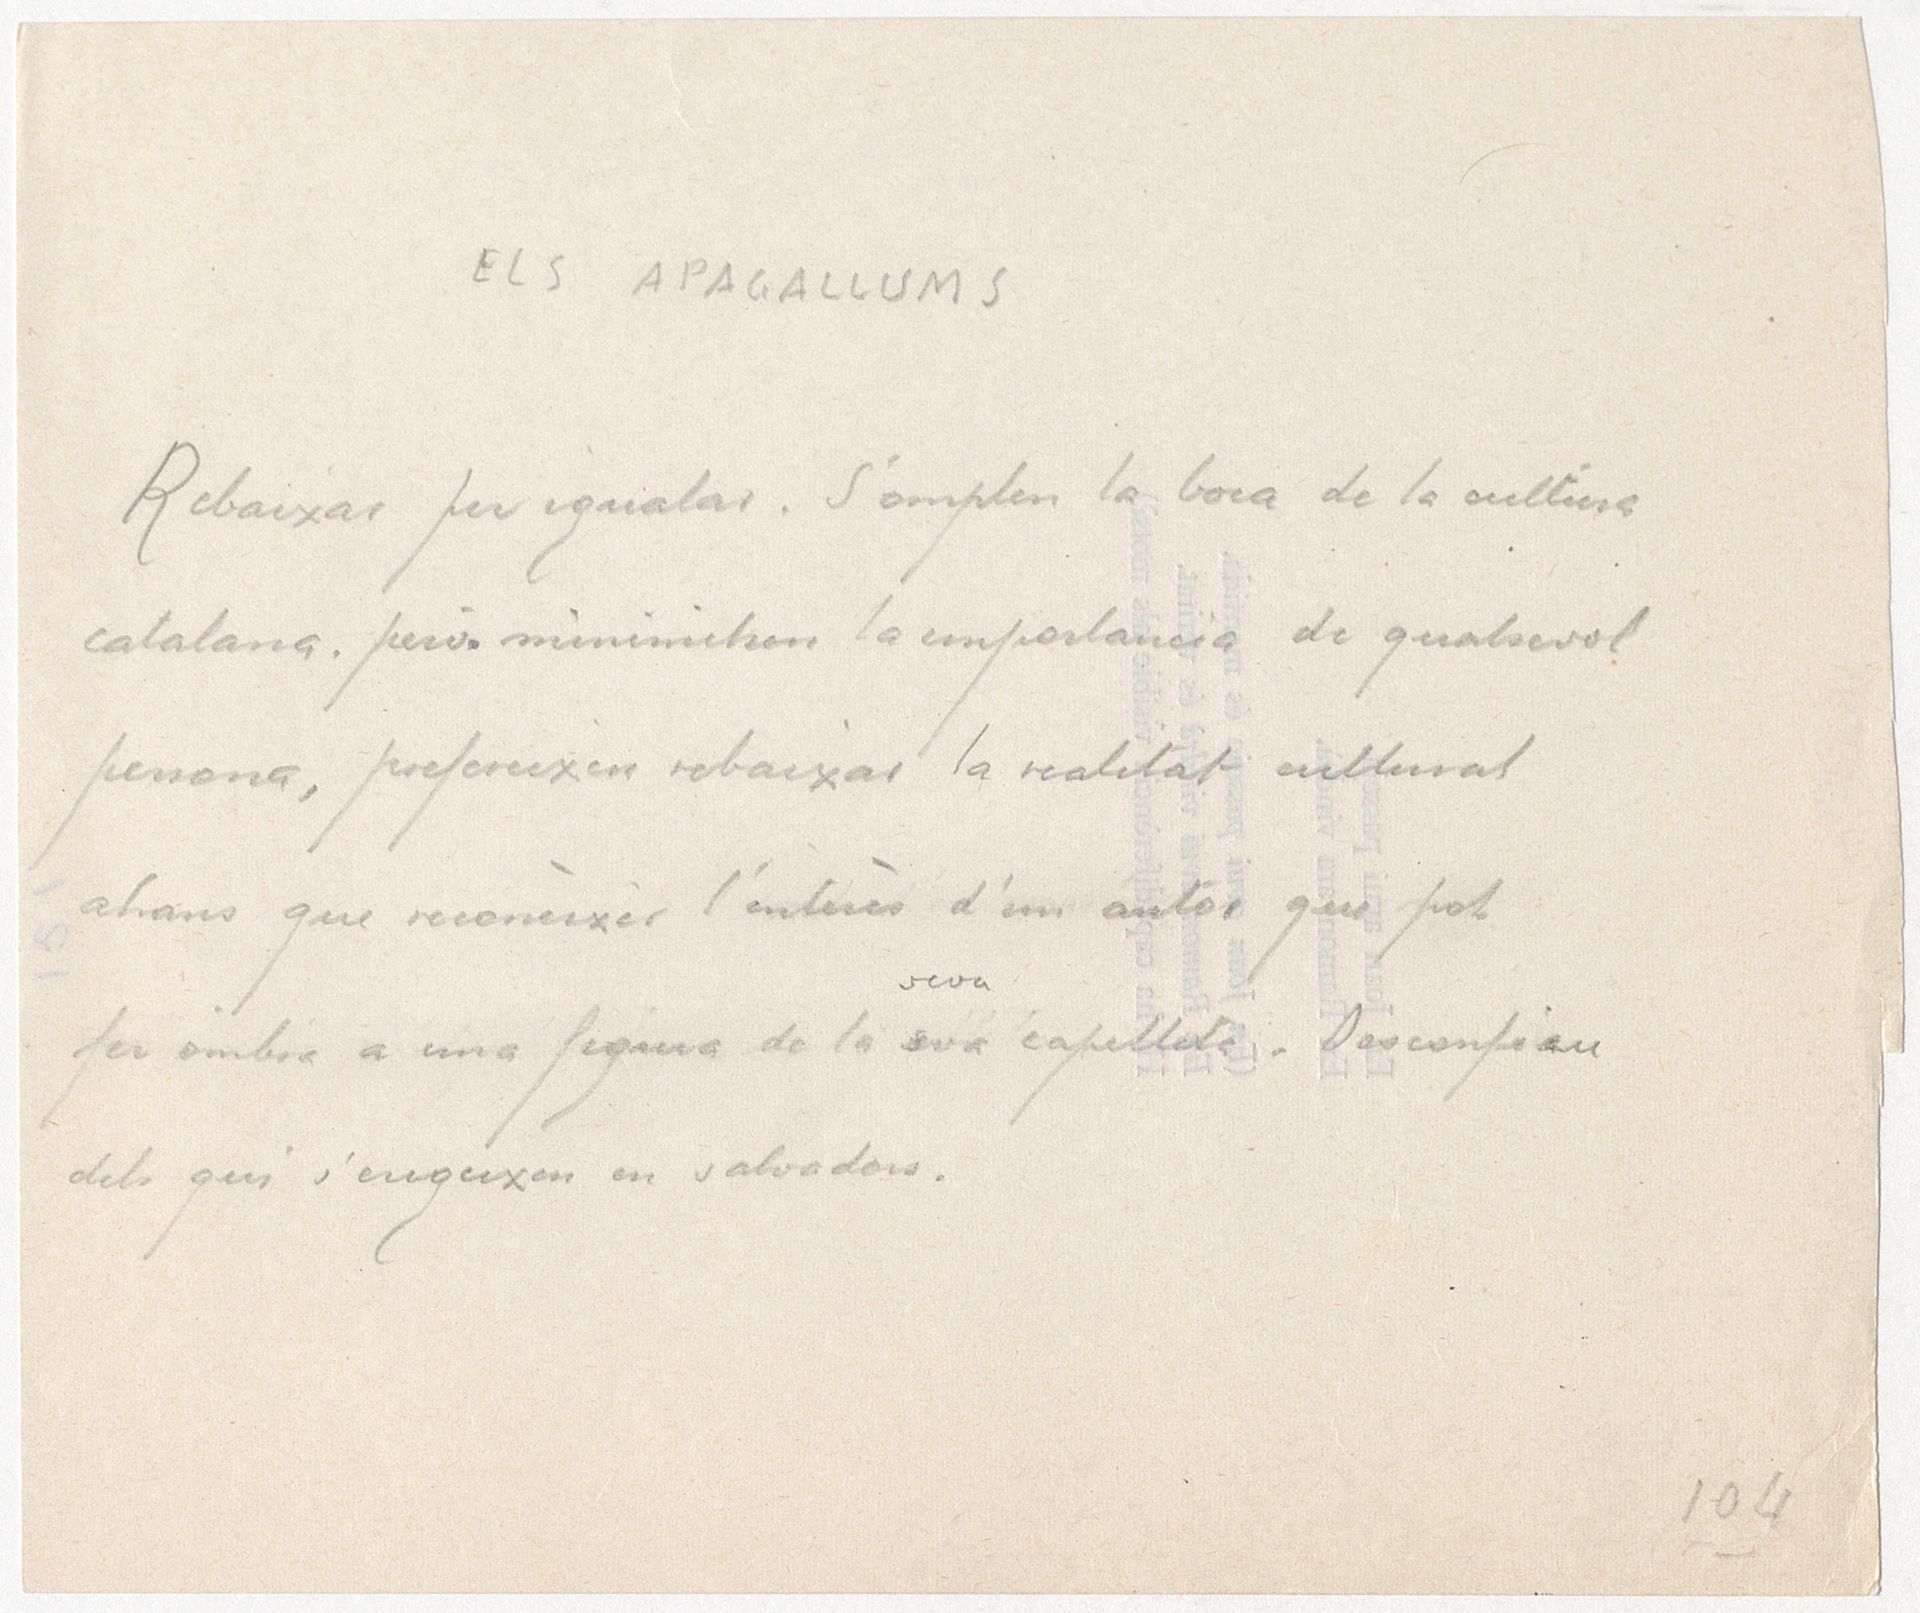 ELS APAGALLUMS
Rebaixar per igualar. S'omplen la boca de la cultura
catalana. però minimitzen la importancia de qualsevol
persona, prefereixen rebaixar la realitat cultural
abans que reconèixer l'interès d'un autor que pot
seva
fer ombra a una figura de la seva capelleta. Desconfieu
dels qui s'erigeixen en salvadors.
104